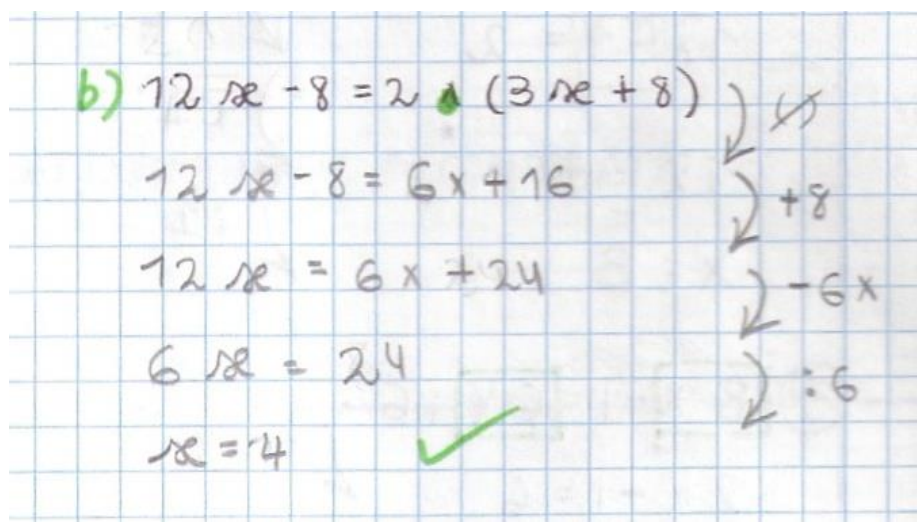 b) 12x - 8 = 2 · (3x + 8)
12x - 8 = 6x + 16
+8
12x = 6x + 24
-6x
6x = 24
:6
x = 4